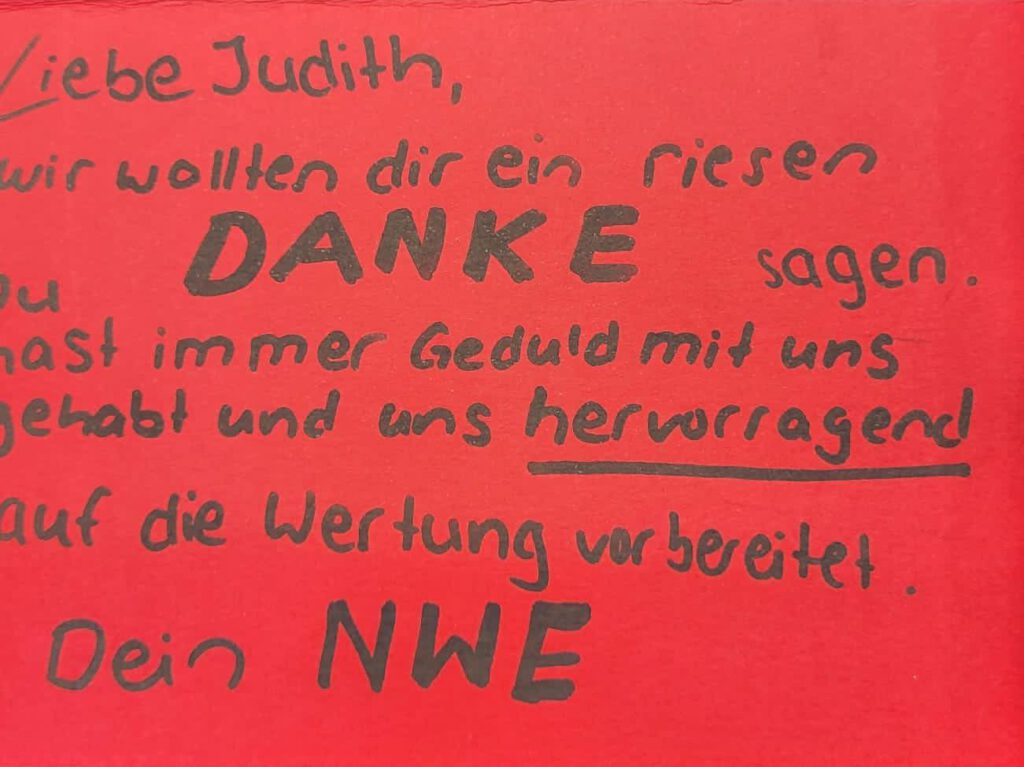 Liebe Judith,
wir wollten dir ein riesen
DANKE sagen.
Du
hast immer Geduld mit uns
gehabt und uns hervorragend
auf die Wertung vorbereitet.
Dein NWE